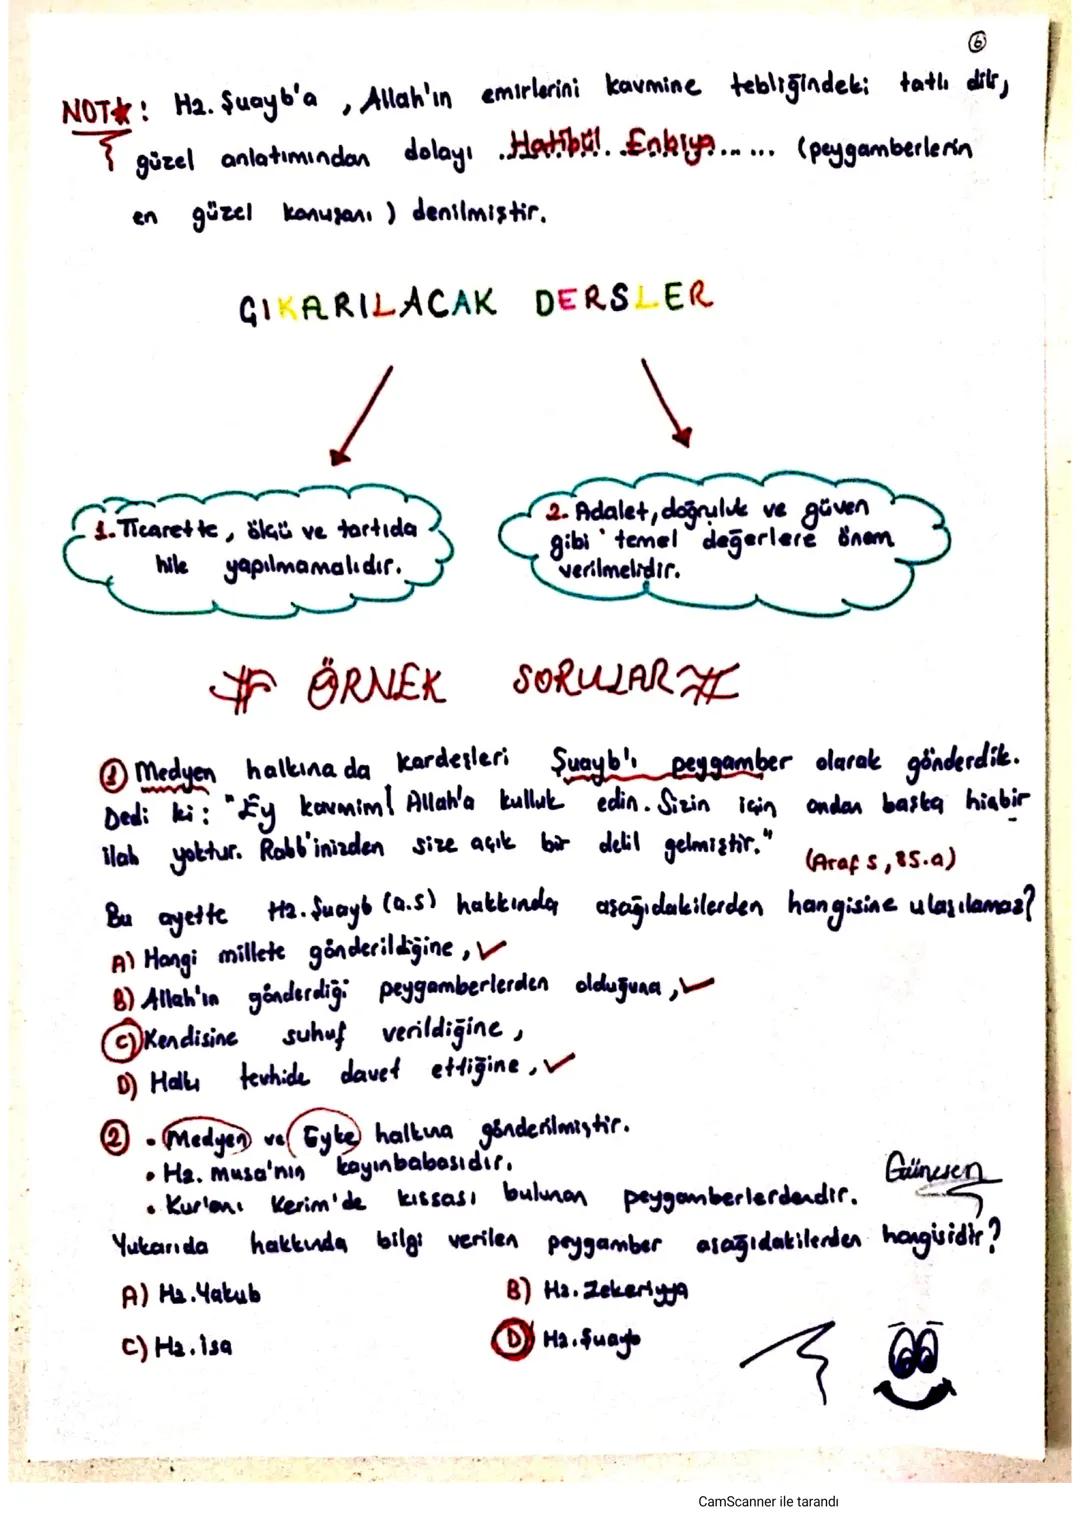 6
NOT★: Hz. Şuayb'a, Allah'ın emirlerini kavmine tebliğindeki tatlı dili,
güzel anlatımından dolayı ..Hatibül..Enbiya...... (peygamberlerin
en güzel konuşanı) denilmiştir.
ÇIKARILACAK DERSLER
1. Ticarette, ölçü ve tartıda
hile yapılmamalıdır.
2. Adalet, doğruluk ve güven
gibi temel değerlere önem
verilmelidir.
# ÖRNEK SORULAR #
1 Medyen halkına da kardeşleri Şuayb'ı peygamber olarak gönderdik.
Dedi ki: "Ey kavmim! Allah'a kulluk edin. Sizin için ondan başka hiçbir
ilah yoktur. Rabb'inizden size açık bir delil gelmiştir."
(Araf s, 85.a)
Bu ayette Hz. Şuayb (a.s) hakkında aşağıdakilerden hangisine ulaşılamaz?
A) Hangi millete gönderildiğine, ✓
B) Allah'ın gönderdiği peygamberlerden olduğuna, ✓
C) Kendisine suhuf verildiğine,
D) Halkı tevhide davet ettiğine, ✓
2 • Medyen ve Eyke halkına gönderilmiştir.
• Hz. musa'nın kayınbabasıdır.
Günesen
• Kur'anı Kerim'de kıssası bulunan peygamberlerdendir.
Yukarıda hakkında bilgi verilen peygamber aşağıdakilerden hangisidir?
A) Hz. Yakub
B) Hz. Zekeriyya
C) Hz. isa
D) Hz. Şuayb
CamScanner ile tarandı